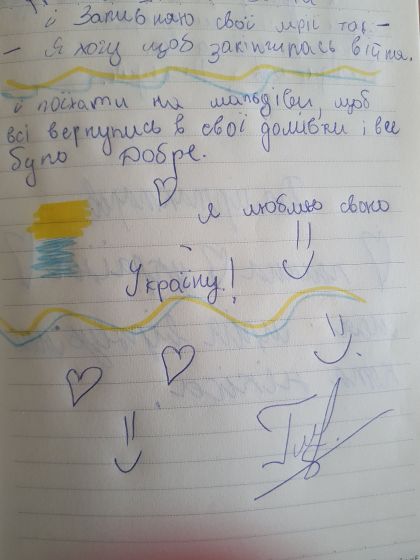 і Запивняю свої мрії так –
– Я хочу щоб закінчилась війна.
і поїхати на мальдіви, щоб
всі вернулись в свої домівки і все
було Добре.
Я люблю свою
Україну!